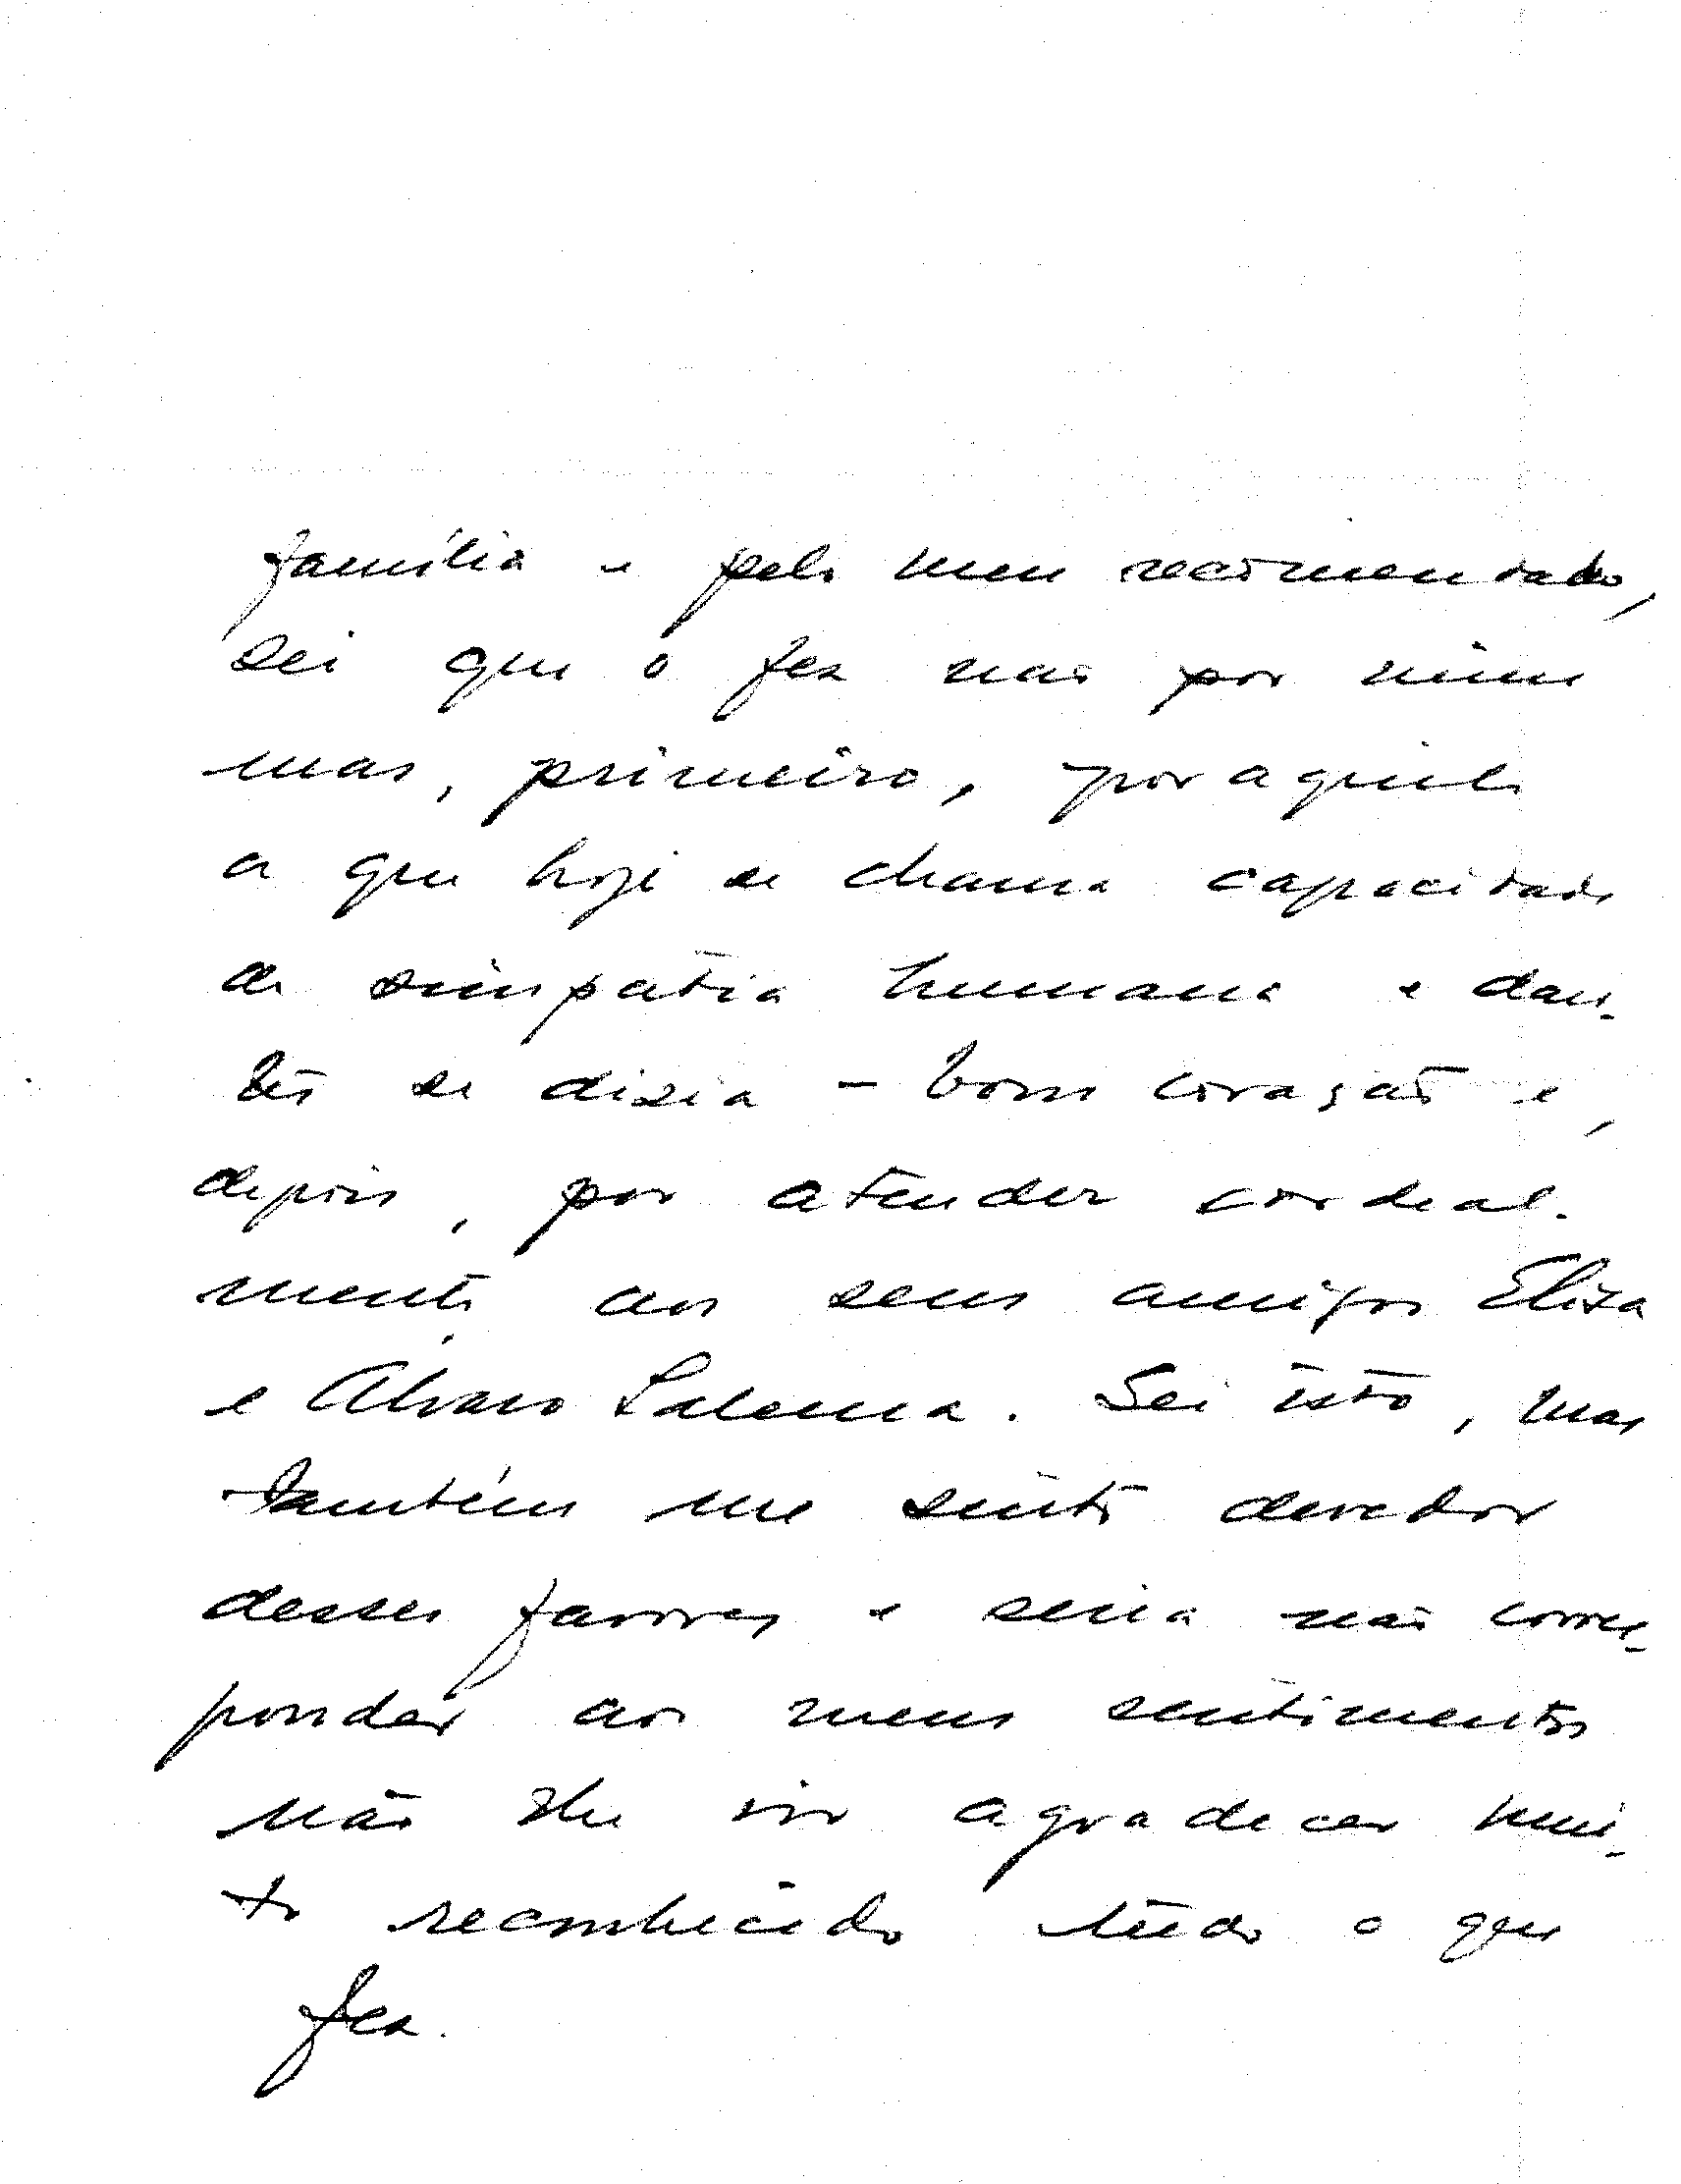 família e pelo meu recomendado,
sei que o fez não por mim
mas, primeiro, por aquilo
a que hoje se chama capacidade
de simpatia humana e dan-
tes se dizia – bom coração e,
depois, por atender cordeal-
mente aos seus amigos Elisa
e Alvaro Salema. Sei isto, mas
também me sinto devedor
desses favores e seria não corres-
ponder aos meus sentimentos
não lhe vir agradecer mui-
to reconhecido tudo o que
fez.